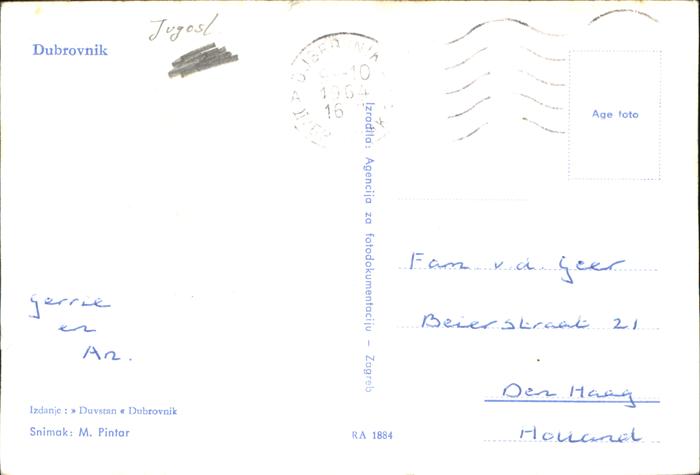 Jugosl.
Dubrovnik
DUBROVNIK
-10
1964
16
Age foto
Izradila: Agencija za fotodokumentaciju – Zagreb
Fam v.d. Geer
Beierstraat 21
Den Haag
Holland
Gerrie
en
An.
Izdanje : » Duvstan « Dubrovnik
Snimak: M. Pintar
RA 1884